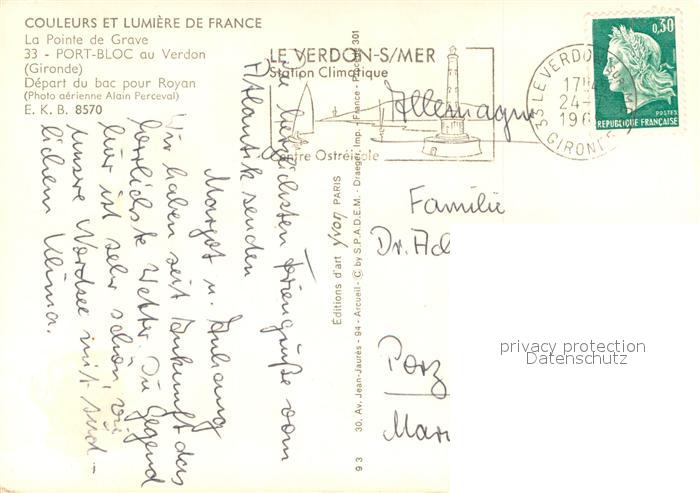 COULEURS ET LUMIÈRE DE FRANCE
La Pointe de Grave
33 - PORT-BLOC au Verdon
(Gironde)
Départ du bac pour Royan
(Photo aérienne Alain Perceval)
E. K. B. 8570
LE VERDON-S/MER
Station Climatique
Centre Ostréicole
33 LE VERDON SUR MER
17H
24-
196
GIRONDE
0,30
POSTES
REPUBLIQUE FRANÇAISE
Allemagne
Die herzlichsten Feriengrüße vom
Atlantik senden
Margot u. Anhang
Wir haben seit Ankunft das
herrlichste Wetter. Die Gegend
hier ist sehr schön, wie
unsere Nordsee mit süd-
lichem Klima.
Editions d'art yvon PARIS
30, Av. Jean-Jaurès - 94 - Arcueil - © by S.P.A.D.E.M. - Draeger, Imp. - France - Procédé 301
93
Familie
Dr. Ad
Porz
Mar
privacy protection
Datenschutz